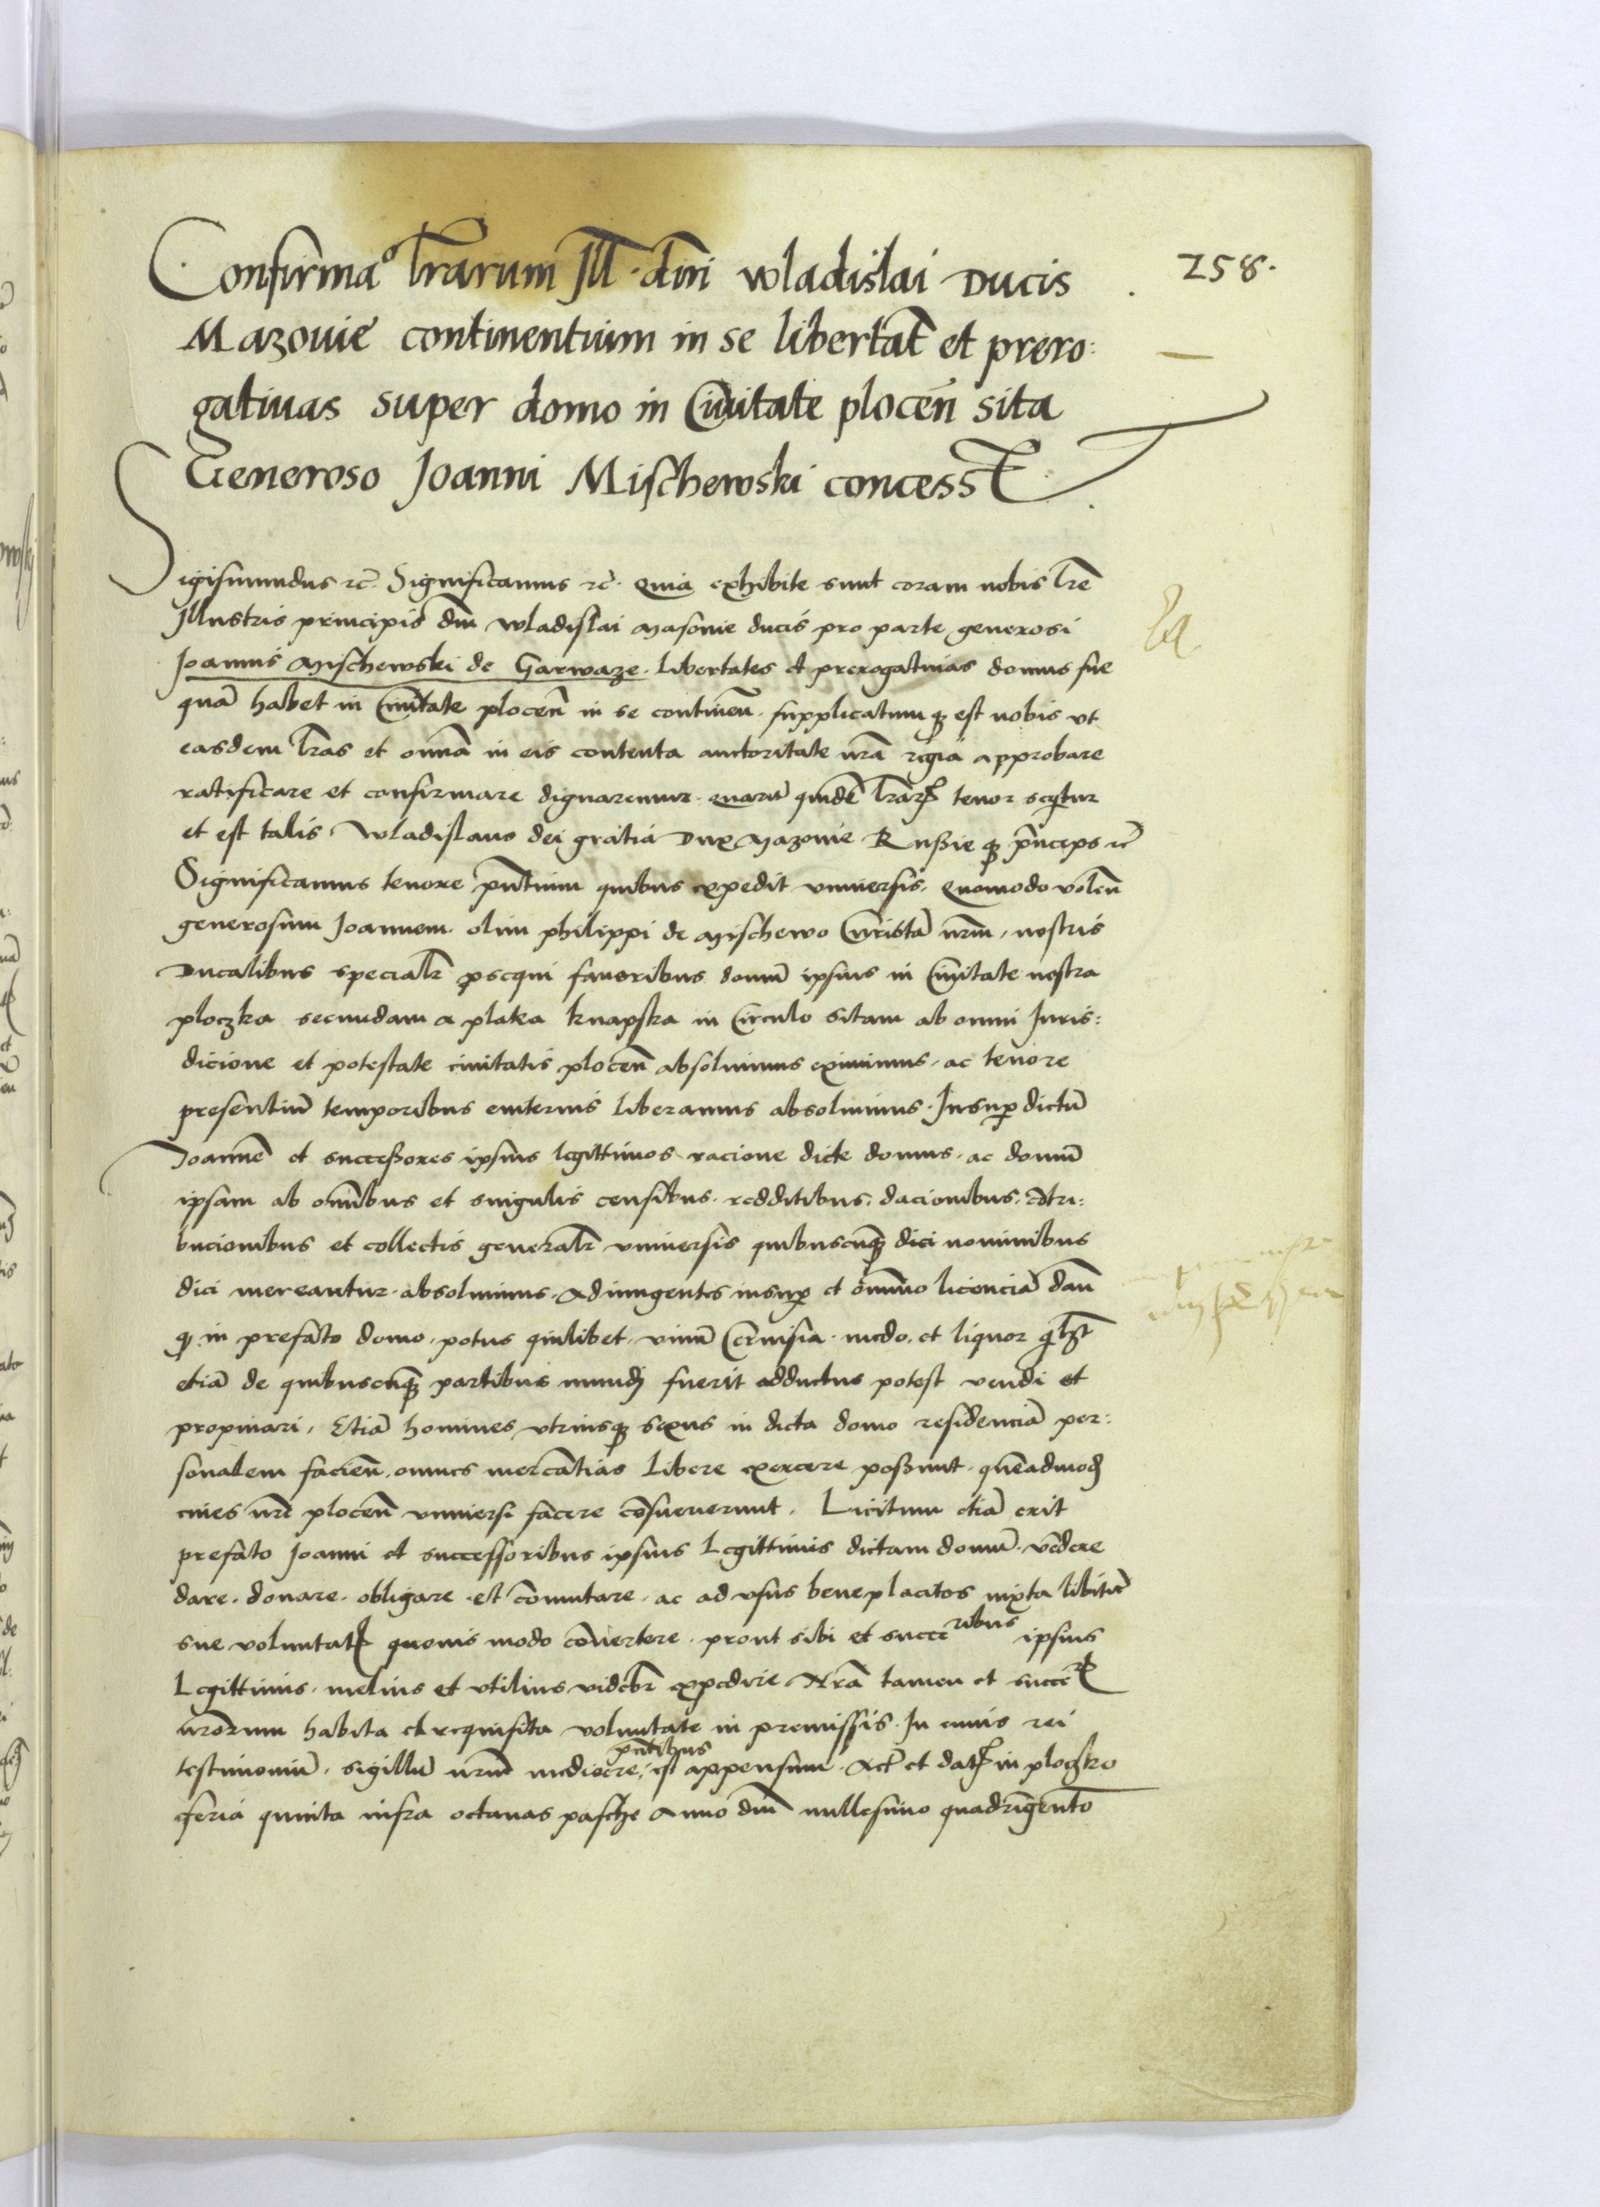 Confirmaº lrarum Ill. dni wladislai Ducis
258.
Mazouie continentium in se libertat et prero:
gatiuas super domo in Ciuitate plocen sita
Generoso Joanni Mischewski concess
Sigismundus rc̄. Significamus rc̄. Quia exhibite sunt coram nobis lre
Illustris principis dni wladislai Masouie ducis pro parte generosi
Joannis Mischewski de Garwaze. Libertates et prerogatiuas domus sue
quā habet in Ciuitate plocen̄ in se continen̄. supplicatumq̄ est nobis vt
easdem lras et omnia in eis contenta auctoritate nr̄a regia approbare
ratificare et confirmare dignaremur. quarū quidē lrarꝝ tenor seqtur
et est talis. Wladislaus dei gratia Dux Mazouie Russieq̄ prīceps rc̄
Significamus tenore pn̄tium quibus expedit vniuersis. Quomodo volen̄
generosum Joannem olim philippi de Mischewo Curistā nrm̄, nostris
Ducalibus specialr̄ ꝓsequi fauoribus domū ipsius in Ciuitate nostra
ploczka secundam a platea knapska in Circulo sitam ab omni Juris:
dicione et potestate ciuitatis plocen̄ absoluimus eximimus, ac tenore
presentiū temporibus euiternis liberamus absoluimus. Insuꝑ dictū
Joannē et successores ipsius legittimos racione dicte domus. ac domū
ipsam ab om̄ibus et singulis censibus. redditibus. dacionibus. cōtri:
bucionibus et collectis generalr̄ vniuersis quibuscūq̄ dici nominibus
dici mereantur. absoluimus. Adiungentes insuꝑ et om̄imo licenciā dan̄
ꝙ in prefato domo. potus quilibet. vinū Ceruisia. medo. et liquor qlꝫt
etiā de quibuscūq̄ partibus mundi fuerit adductus potest vendi et
propinari. Etiā homines vtriusq̄ sexus in dicta domo residenciā per:
sonalem facien̄. omnes mercātias libere exercere possunt. quēadmodū
ciues nr̄i plocen̄ vniuersi facere cōsueuerunt. Licitum etiā erit
prefato Joanni et successoribus ipsius Legittimis dictam domū. vēdere
dare. donare. obligare. et cōmutare. ac ad vsus beneplacitos iuxta libitū
sue voluntatꝭ quouis modo cōuertere. prout sibi et succeribus ipsius
Legittimis. melius et vtilius videbr̄ expedire. Nr̄a tamen et succerꝝ
nr̄orum habita et requisita voluntate in premissis. In cuius rei
testimoniū. sigillū nrm̄ mediocre pn̄tibus est appensum. Act̄ et datꝭ in ploczko
feria quinta infra octauas pasche Anno dni millesimo quadringento